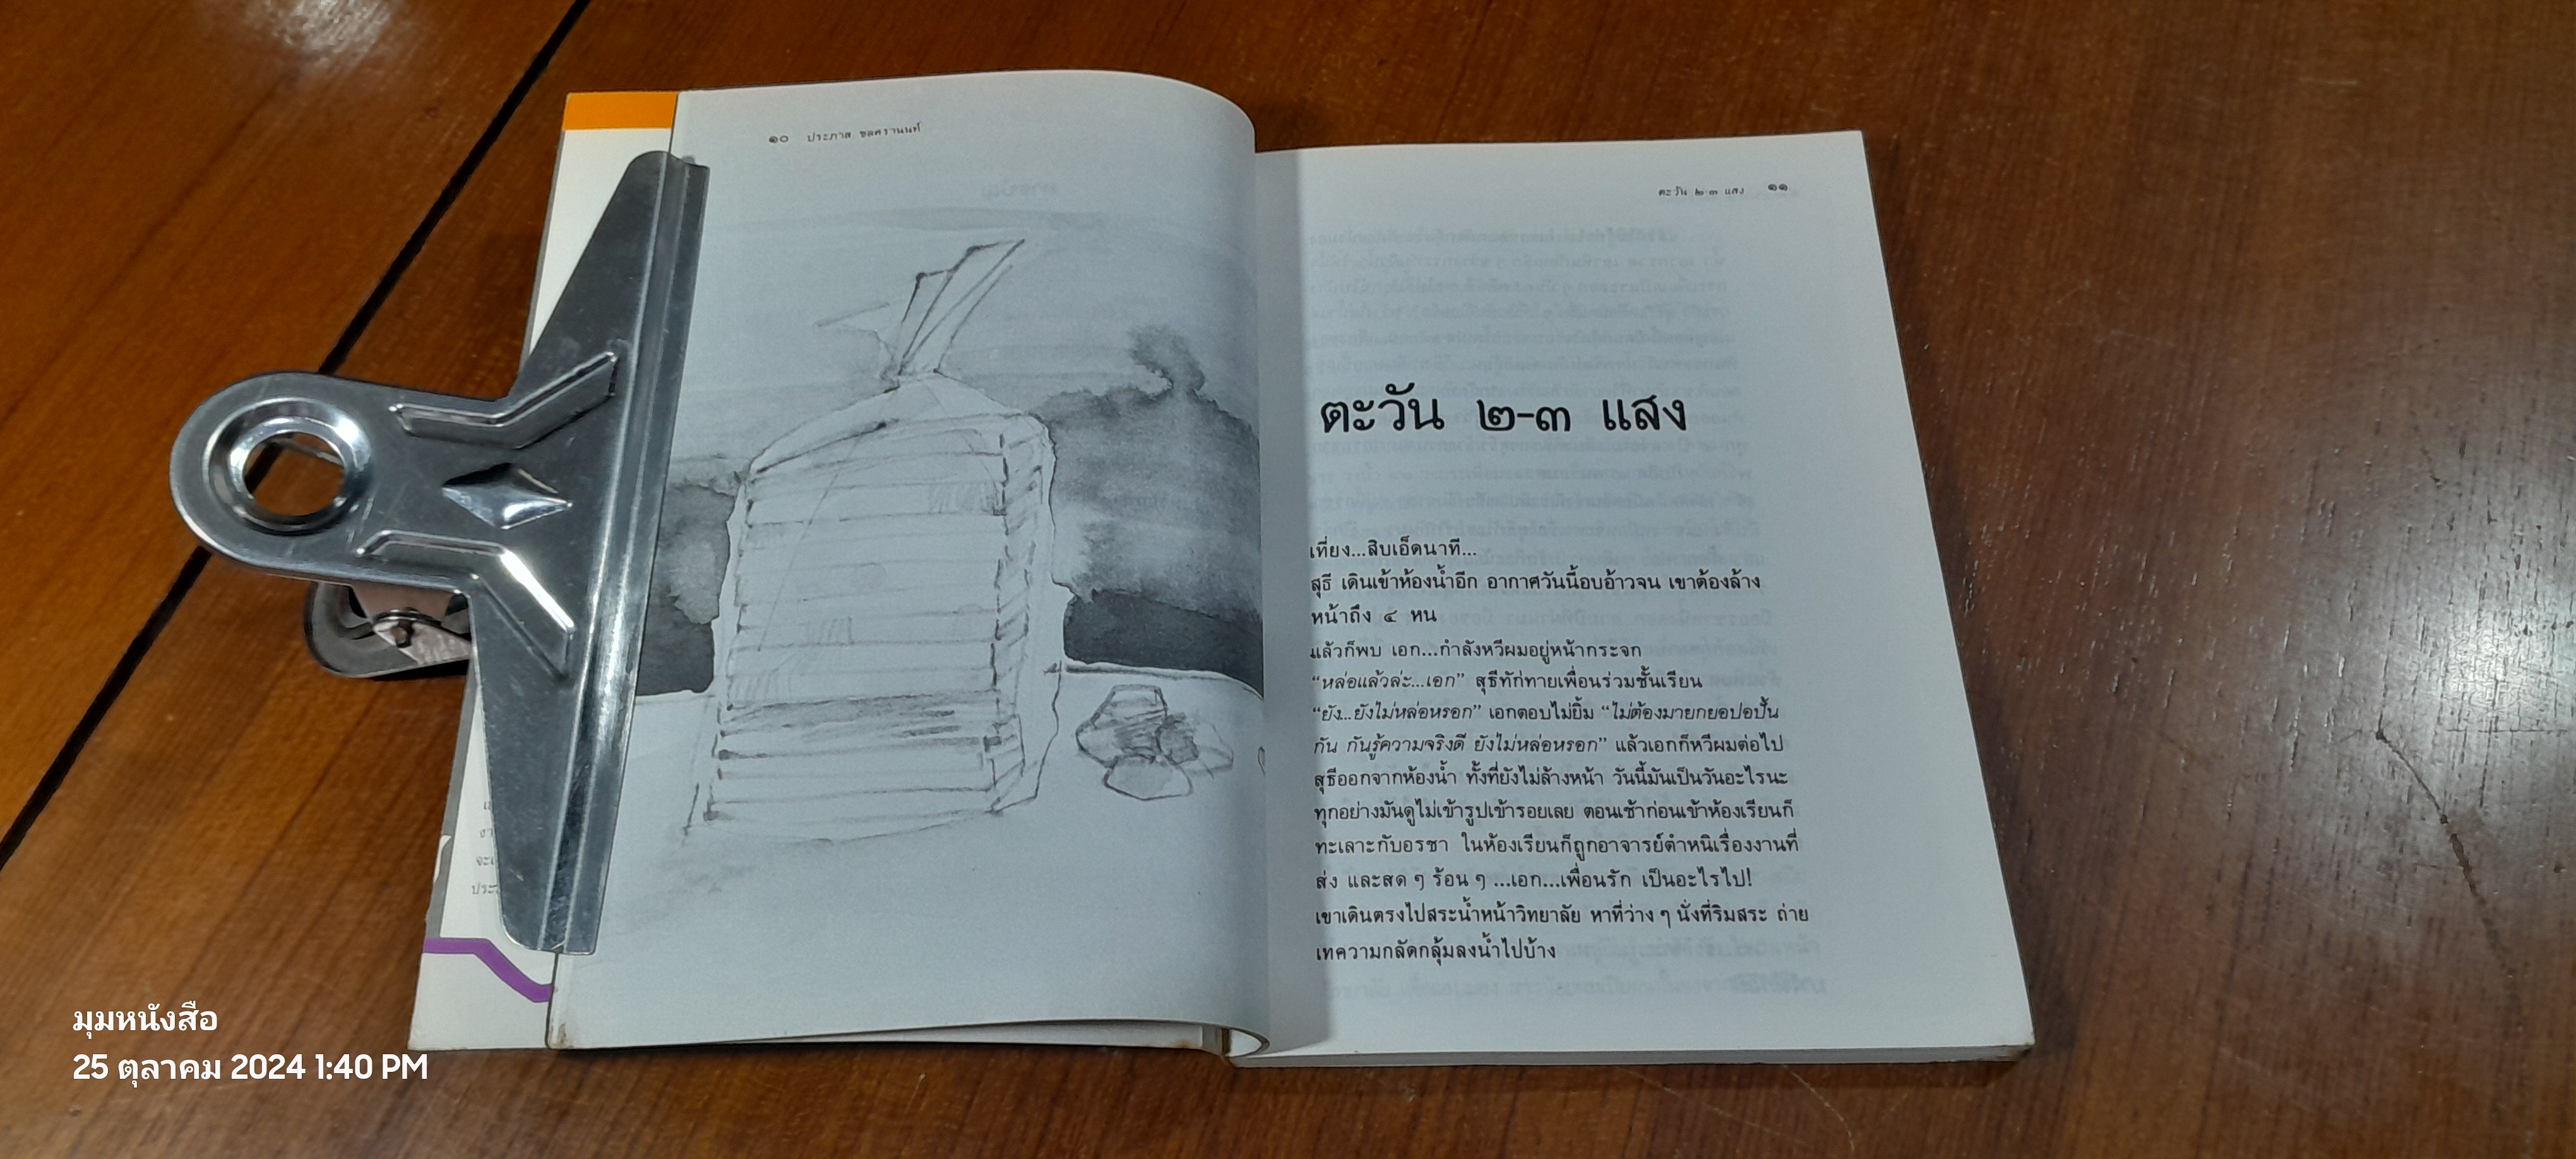 ๑๐ ประภาส ชลศรานนท์
ตะวัน ๒-๓ แสง ๑๑
ตะวัน ๒-๓ แสง
เที่ยง...สิบเอ็ดนาที...
สุธี เดินเข้าห้องน้ำอีก อากาศวันนี้อบอ้าวจน เขาต้องล้าง
หน้าถึง ๔ หน
แล้วก็พบ เอก...กำลังหวีผมอยู่หน้ากระจก
“หล่อแล้วล่ะ...เอก” สุธีทักทายเพื่อนร่วมชั้นเรียน
“ยัง...ยังไม่หล่อหรอก” เอกตอบไม่ยิ้ม “ไม่ต้องมายกยอปอปั้น
กัน กันรู้ความจริงดี ยังไม่หล่อหรอก” แล้วเอกก็หวีผมต่อไป
สุธีออกจากห้องน้ำ ทั้งที่ยังไม่ล้างหน้า วันนี้มันเป็นวันอะไรนะ
ทุกอย่างมันดูไม่เข้ารูปเข้ารอยเลย ตอนเช้าก่อนเข้าห้องเรียนก็
ทะเลาะกับอรชา ในห้องเรียนก็ถูกอาจารย์ตำหนิเรื่องงานที่
ส่ง และสด ๆ ร้อน ๆ ...เอก...เพื่อนรัก เป็นอะไรไป!
เขาเดินตรงไปสระน้ำหน้าวิทยาลัย หาที่ว่าง ๆ นั่งที่ริมสระ ถ่าย
เทความกลัดกลุ้มลงน้ำไปบ้าง
มุมหนังสือ
25 ตุลาคม 2024 1:40 PM